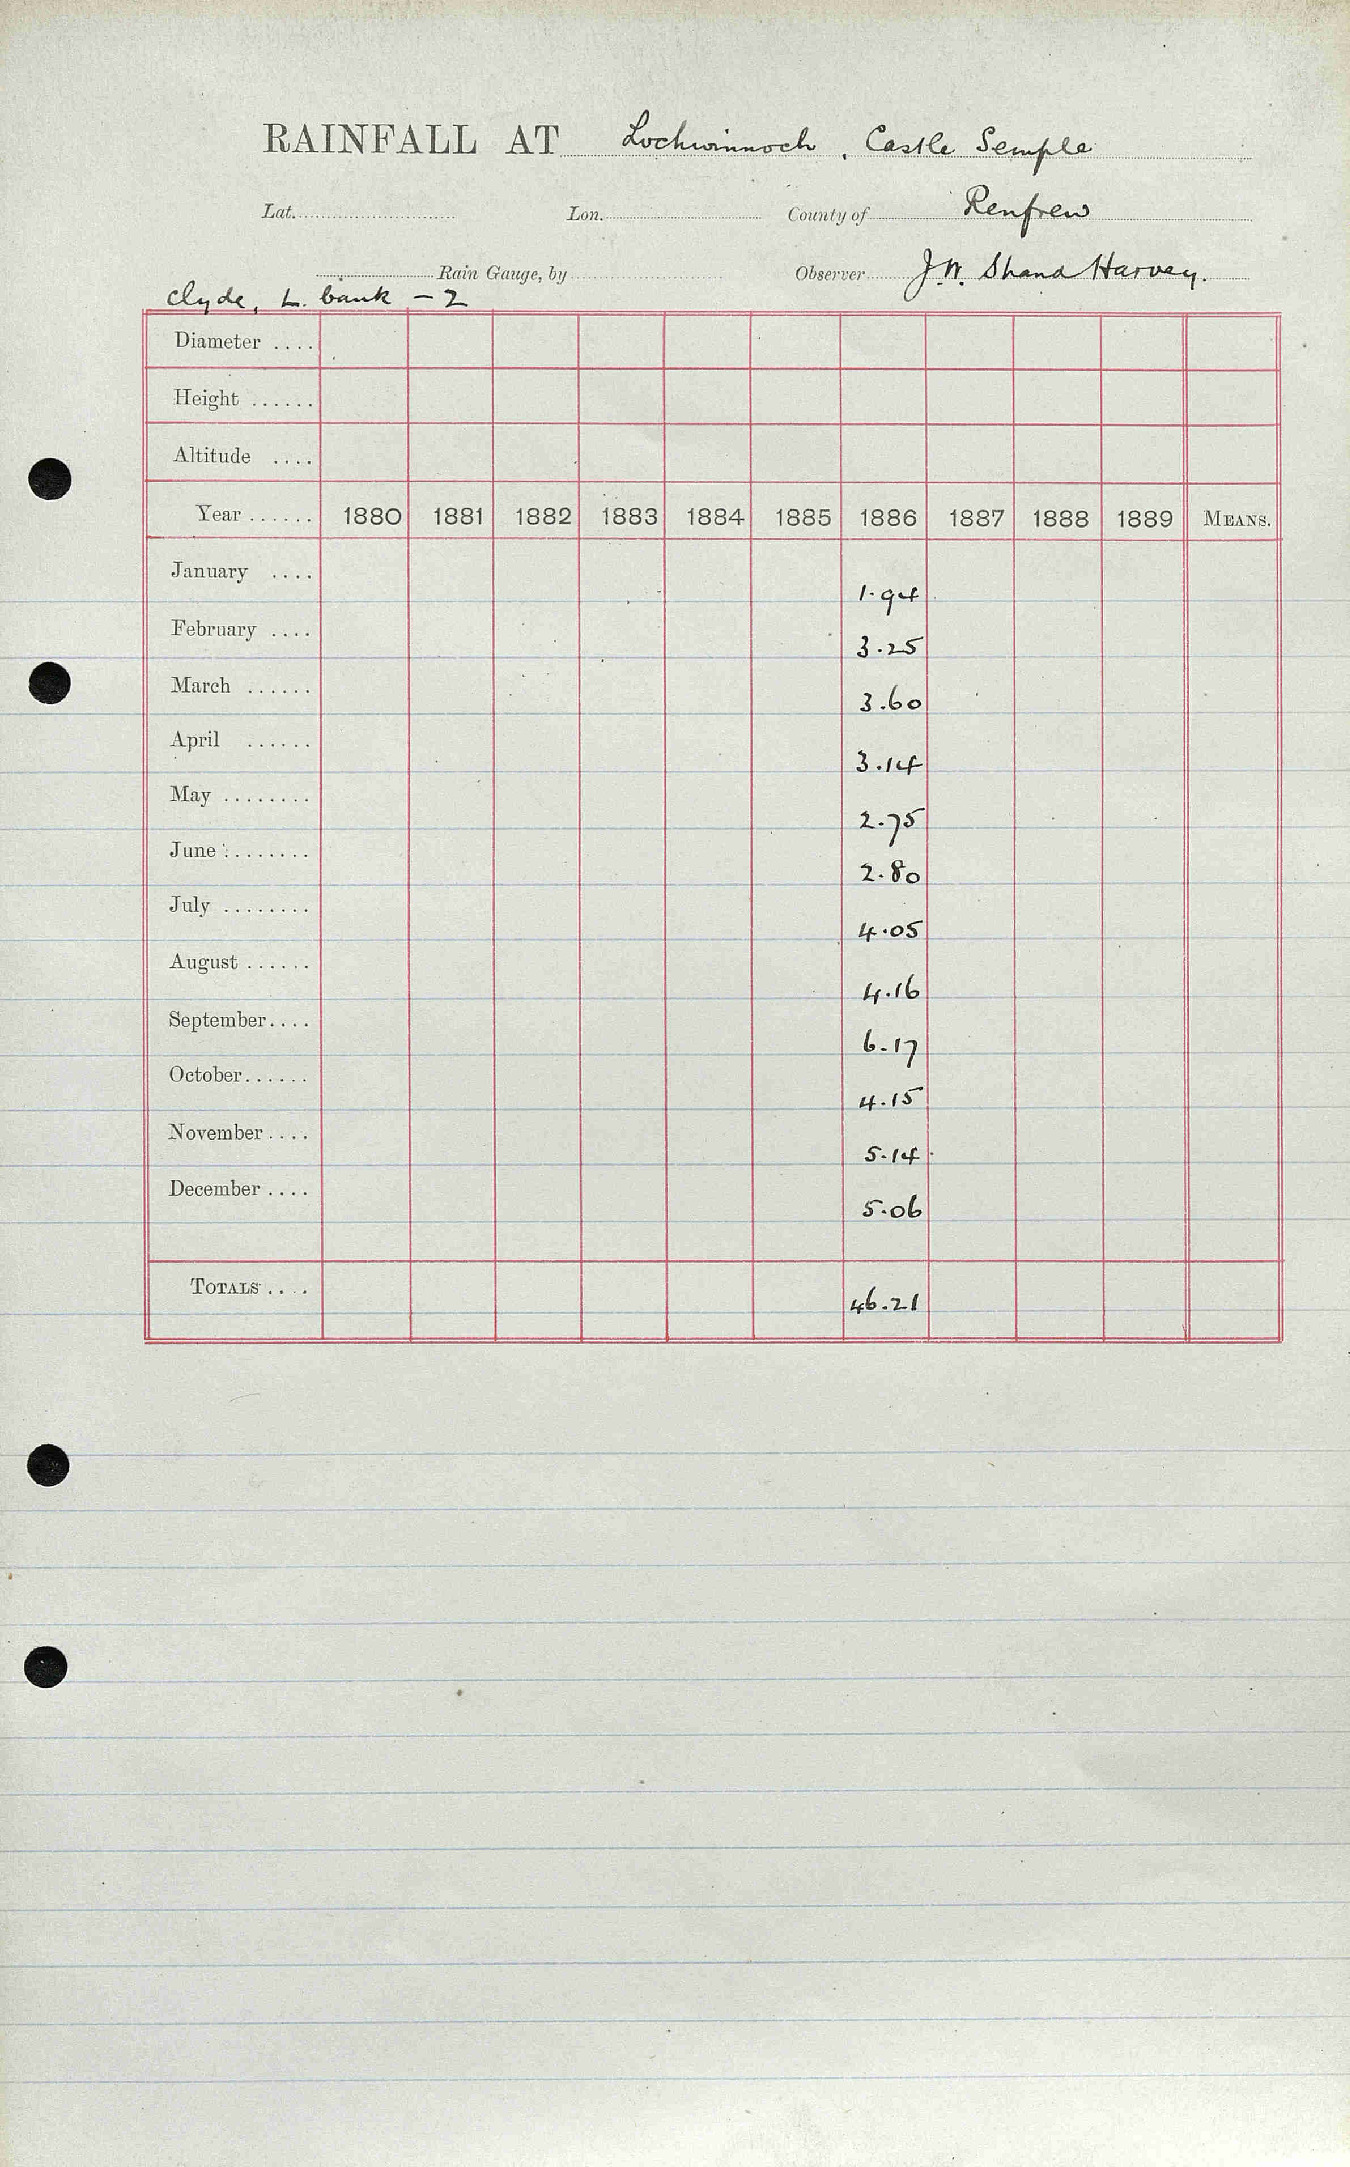 RAINFALL AT Lochwinnoch, Castle Semple
Lat. Lon. County of Renfrew
Rain Gauge, by Observer J.W. Shand Harvey.
Clyde, L. bank - 2
Diameter ....
Height ......
Altitude ....
Year ...... 1880 1881 1882 1883 1884 1885 1886 1887 1888 1889 MEANS.
January .... 1.94
February .... 3.25
March ...... 3.60
April ...... 3.14
May ........ 2.75
June ........ 2.80
July ........ 4.05
August ...... 4.16
September.... 6.17
October...... 4.15
November.... 5.14
December.... 5.06
TOTALS.... 46.21